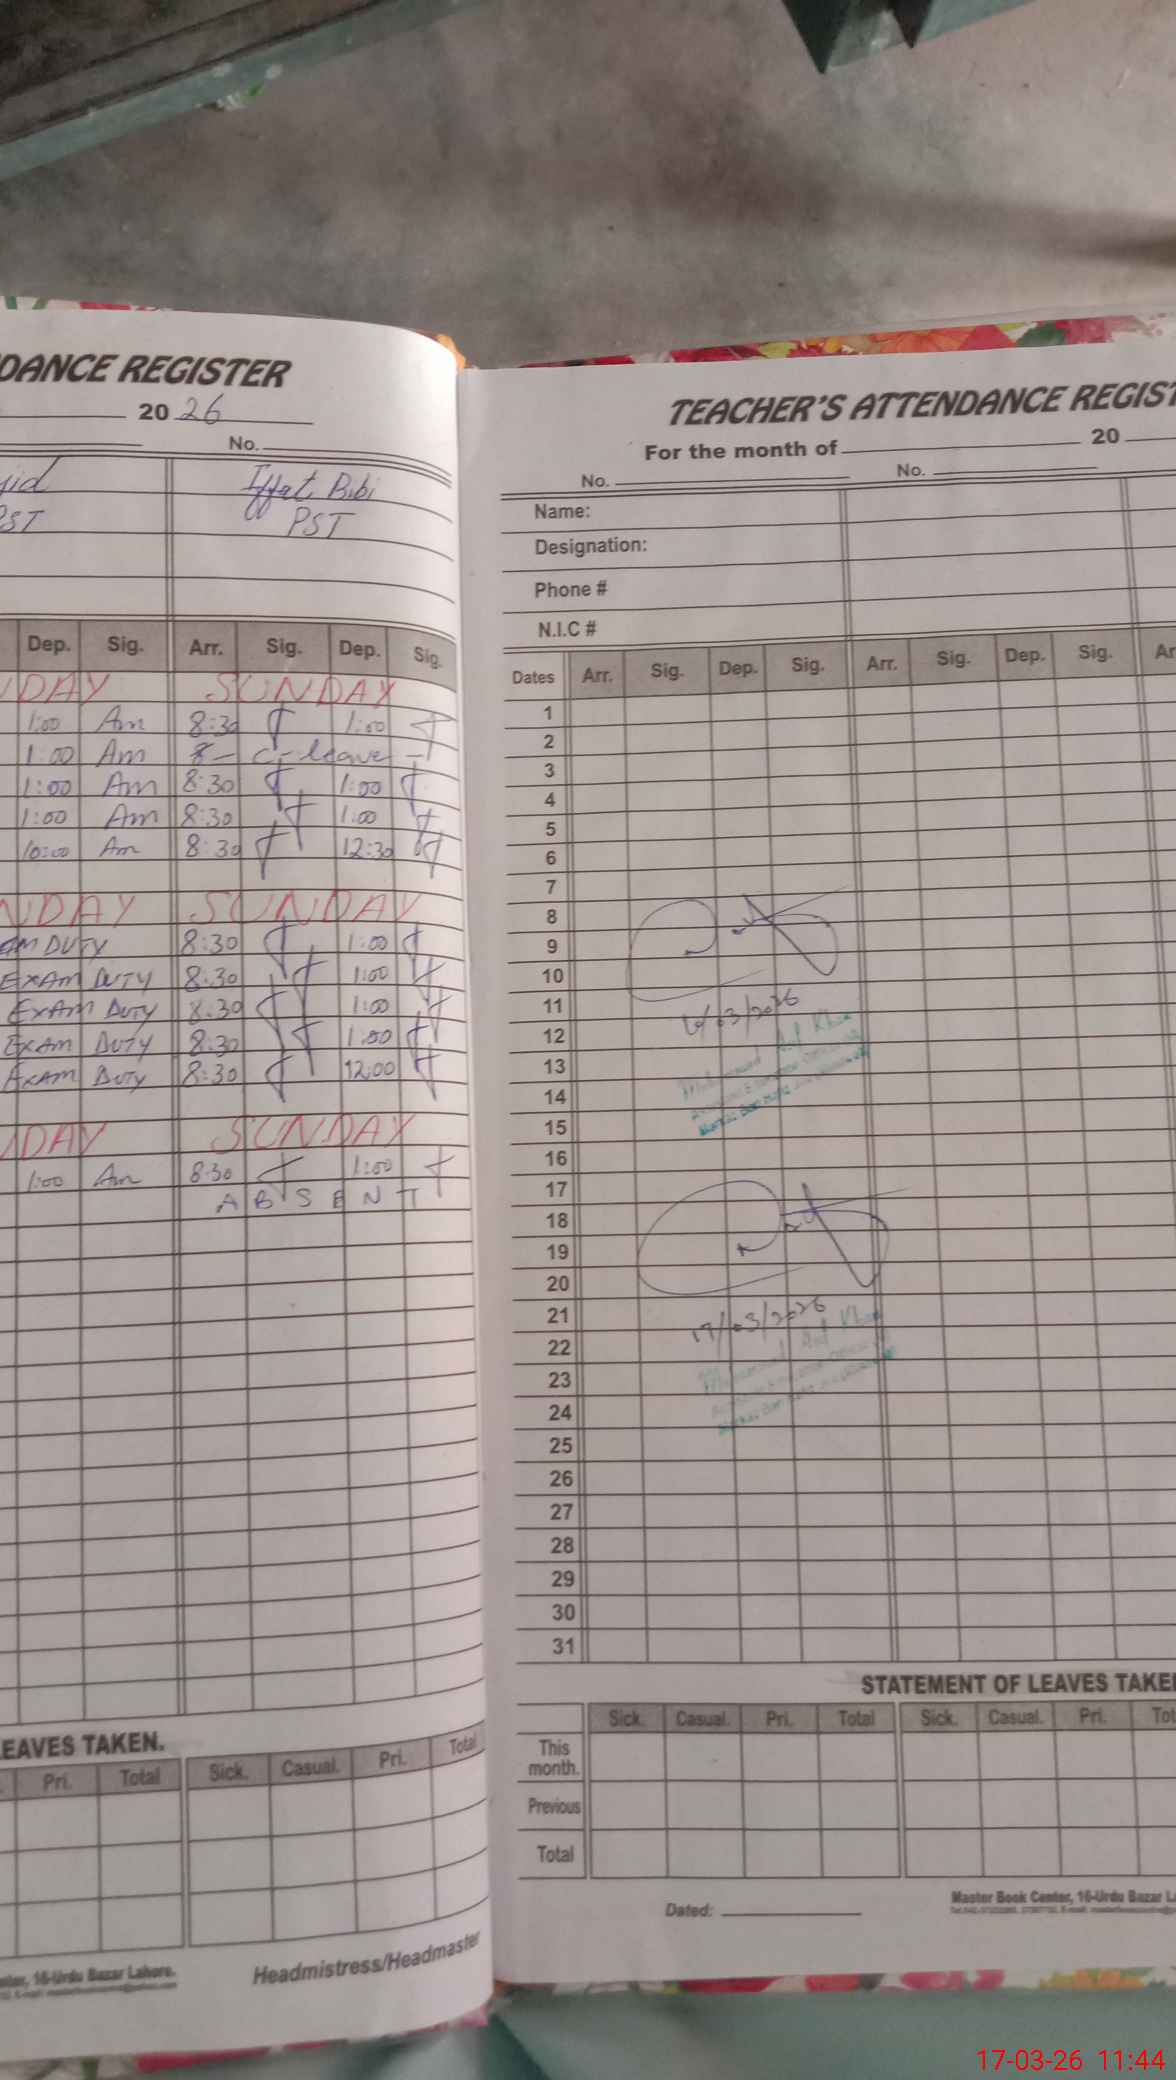 DANCE REGISTER
20 26
No.
jid Iffat Bibi
PST PST
Dep. Sig. Arr. Sig. Dep. Sig.
DAY SUNDAY
1:00 Am 8:30 1:00
1:00 Am 8 - C-leave -
1:00 Am 8:30 1:00
1:00 Am 8:30 1:00
10:00 Am 8:30 12:30
NDAY SUNDAY
AM DUTY 8:30 1:00
EXAM DUTY 8:30 1:00
EXAM DUTY 8:30 1:00
EXAM DUTY 8:30 1:00
EXAM DUTY 8:30 12:00
DAY SUNDAY
1:00 Am 8:30 1:00
ABSENT
EAVES TAKEN.
Pri. Total Sick. Casual. Pri. Total
16-Urdu Bazar Lahore.
Headmistress/Headmaster
TEACHER'S ATTENDANCE REGIST
For the month of 20
No. No.
Name:
Designation:
Phone #
N.I.C #
Dates Arr. Sig. Dep. Sig. Arr. Sig. Dep. Sig. Ar
1
2
3
4
5
6
7
8
9
10
11
12
13
14
15
16
17
18
19
20
21
22
23
24
25
26
27
28
29
30
31
/03/2026
17/03/2026
STATEMENT OF LEAVES TAKE
Sick. Casual. Pri. Total Sick. Casual. Pri. Tot
This month.
Previous
Total
Dated:
Master Book Center, 16-Urdu Bazar La
17-03-26 11:44